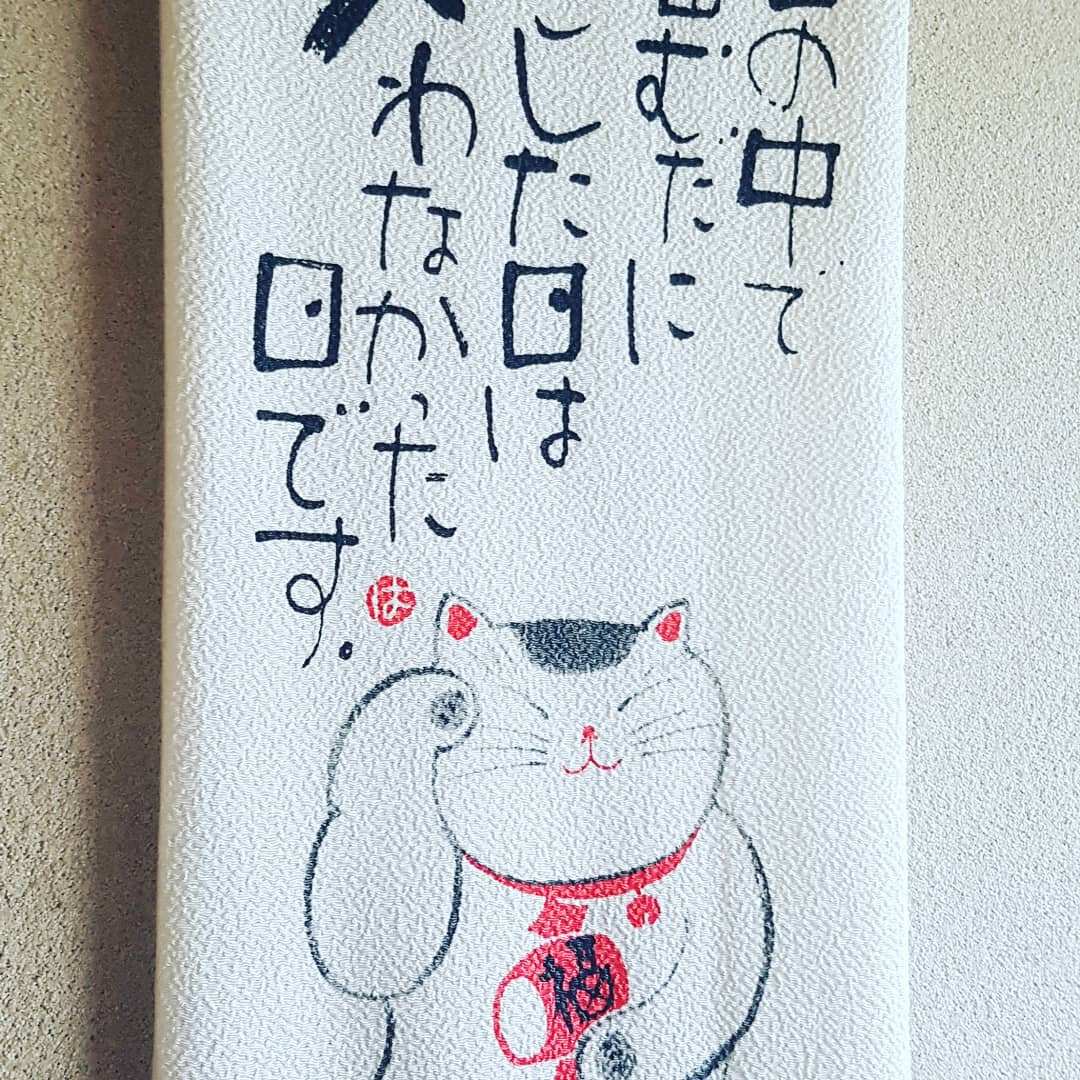 の中で
むだに
した日は
わなかった
日です。
は
福